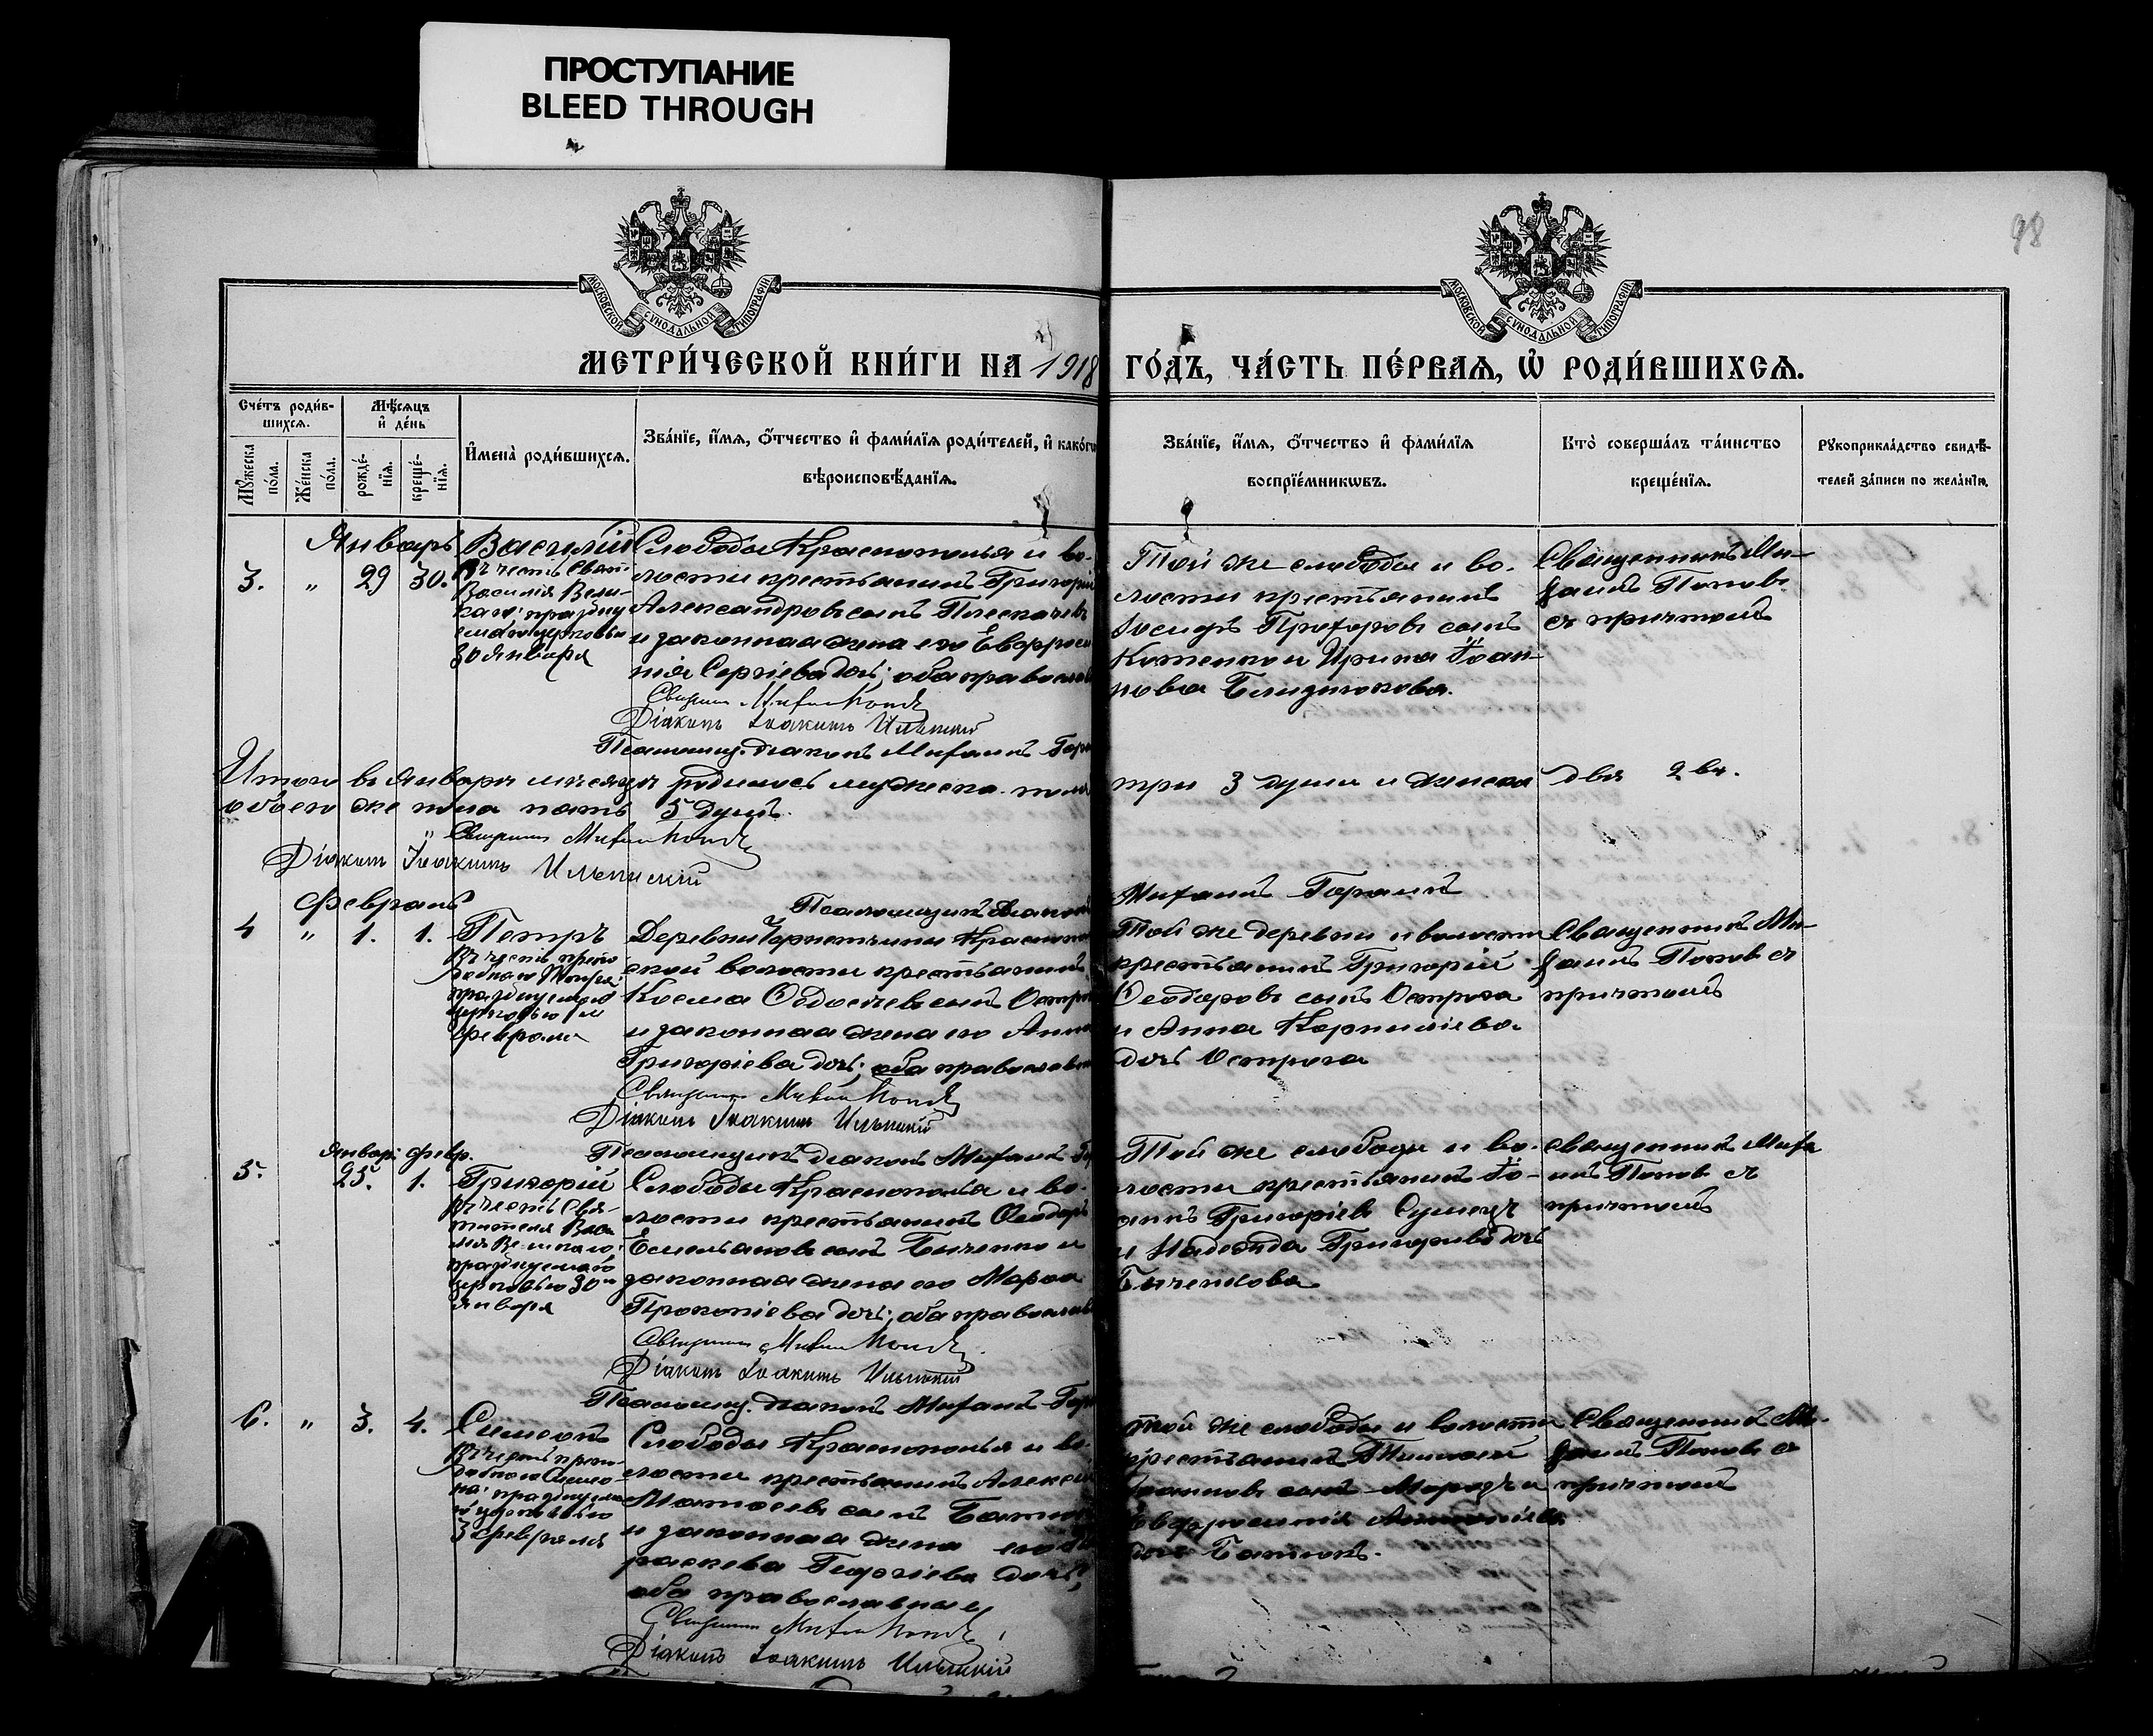 ПРОСТУПАНИЕ
BLEED THROUGH
98
МОСКОВСКОЙ СУНОДАЛЬНОЙ ТИПОГРАФІИ
МОСКОВСКОЙ СУНОДАЛЬНОЙ ТИПОГРАФІИ
МЕТРИ́ЧЕСКОЙ КНИ́ГИ НА 1918 ГО́ДЪ, ЧА́СТЬ ПЕ́РВАЯ, Ѡ҆ РОДИ́ВШИХСЯ.
Сче́тъ роди́в-
шихся.
Мѣ́сяцъ
и҆ де́нь
Му́жеска
по́ла.
Же́нска
по́ла.
рожде́-
нїя.
креще́-
нїя.
И҆мена̀ роди́вшихся.
Зва́нїе, и҆́мя, ѻ҆́тчество и҆ фами́лїя роди́телей, и҆ како́гѡ
вѣроисповѣ́данїя.
Зва́нїе, и҆́мя, ѻ҆́тчество и҆ фами́лїя
воспрїе́мникѡвъ.
Кто̀ соверша́лъ та́инство
креще́нїя.
Рукоприкла́дство свидѣ́-
телей за́писи по жела́нїю.
Январь
3. " 29 30. Василій
въ честь Свят.
Василія Вели-
каго; праздну
емаго церковью
30 января
Слободы Краснополья и во-
лости крестьянинъ Григорій
Александровъ сынъ
и законная жена его Евфроси
нія Сергіева дочь; оба православ
Священ. Михаил Попов
Діаконъ Іоакимъ Ильинскій
Псаломщ. діаконъ Михаилъ
Той же слободы и во-
лости крестьянинъ
Іосифъ Прохоровъ сынъ
Котенко и Ирина Іоан-
нова
Священникъ Ми-
хаилъ Поповъ
съ причтомъ
Итого въ Январѣ мѣсяцѣ родилось мужеска пола три 3 души и женска двѣ 2 въ.
обоего же пола пять 5 душъ.
Священник Михаил Попов
Діаконъ Іоакимъ Ильинскій
Псаломщикъ діаконъ Михаилъ
Февраль
4 " 1. 1. Петръ
въ честь препо
добнаго Петра
празднуемаго
церковью 1
февраля
Деревни
ской волости крестьянинъ
Косма сынъ
и законная жена его Анна
Григоріева дочь; оба православн
Священник Михаил Попов
Діаконъ Іоакимъ Ильинскій
Псаломщикъ діаконъ Михаилъ
Той же деревни и волости
крестьянинъ Григорій
Ѳеодоровъ сынъ Острога
и Анна Корниліева
дочь Острога
Священникъ Ми-
хаилъ Поповъ съ
причтомъ
Январ. Февр.
5. 25. 1. Григорій
въ честь Свя-
тителя Васи
лія Великаго;
празднуемаго
церковью 30
января
Слободы Краснополья и во-
лости крестьянинъ Ѳеодоръ
Емельяновъ сынъ Биченко и
законная жена его Марѳа
Прокопіева дочь; оба православ
Священник Михаил Попов
Діаконъ Іоакимъ Ильинскій
Псаломщ. діаконъ Михаилъ
Той же слободы и во-
лости крестьянинъ Іо-
аннъ Григоріевъ
и Надежда Григорьева дочь
Биченкова
Священникъ Миха
илъ Поповъ съ
причтомъ
6. " 3. 4. Симеонъ
въ честь препо
добнаго Симео
на; празднуема
го церковью
3 февраля
Слободы Краснополья и во-
лости крестьянинъ Алексій
сынъ
и законная жена его
раскева Георгіева дочь;
оба православные
Священник Михаил Попов
Діаконъ Іоакимъ Ильинскій
той же слободы и волости
крестьянинъ
Іоанновъ сынъ и
Евфросинія
дочь
Священникъ Ми-
хаилъ Поповъ съ
причтомъ